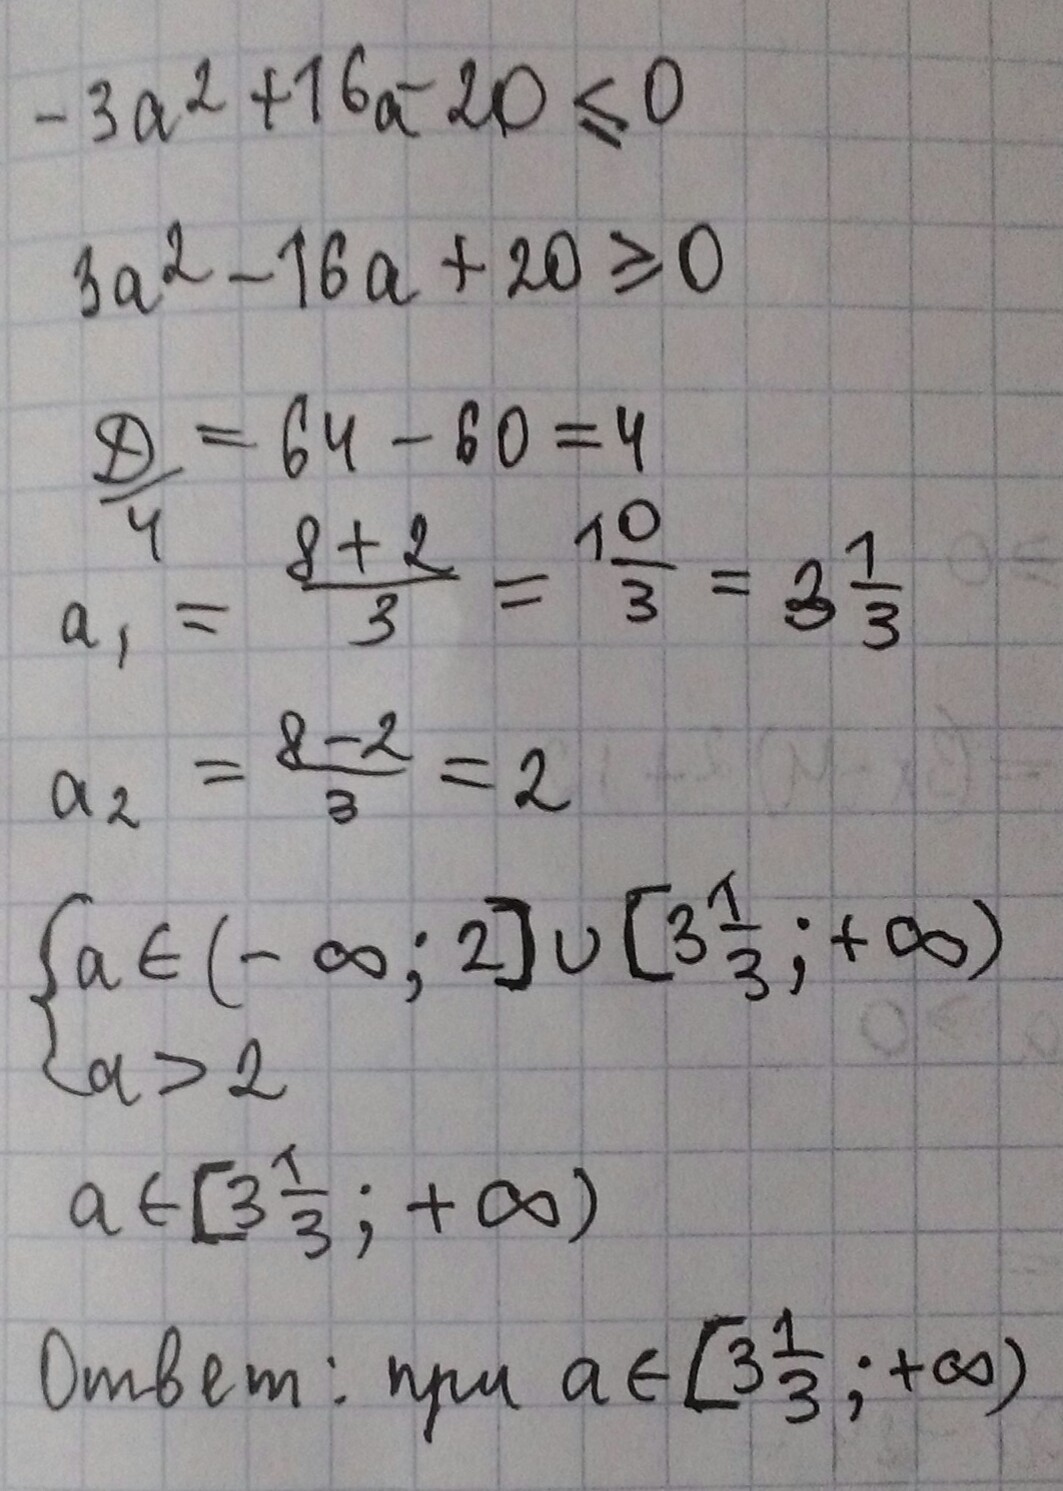 -3a² + 16a - 20 ≤ 0
3a² - 16a + 20 ≥ 0
D/4 = 64 - 60 = 4
a₁ = (8 + 2)/3 = 10/3 = 3 1/3
a₂ = (8 - 2)/3 = 2
{ a ∈ (-∞; 2] ∪ [3 1/3; +∞)
a > 2
a ∈ [3 1/3; +∞)
Ответ: при a ∈ [3 1/3; +∞)